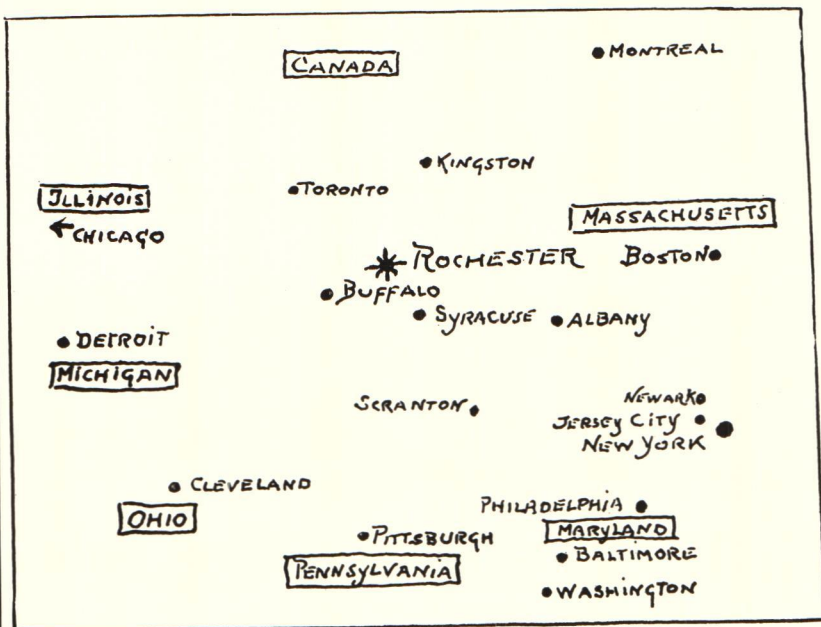 CANADA
MONTREAL
KINGSTON
TORONTO
ILLINOIS
CHICAGO
MASSACHUSETTS
ROCHESTER
BOSTON
BUFFALO
SYRACUSE
ALBANY
DETROIT
MICHIGAN
SCRANTON
NEWARK
JERSEY CITY
NEW YORK
CLEVELAND
OHIO
PHILADELPHIA
MARYLAND
PITTSBURGH
BALTIMORE
PENNSYLVANIA
WASHINGTON